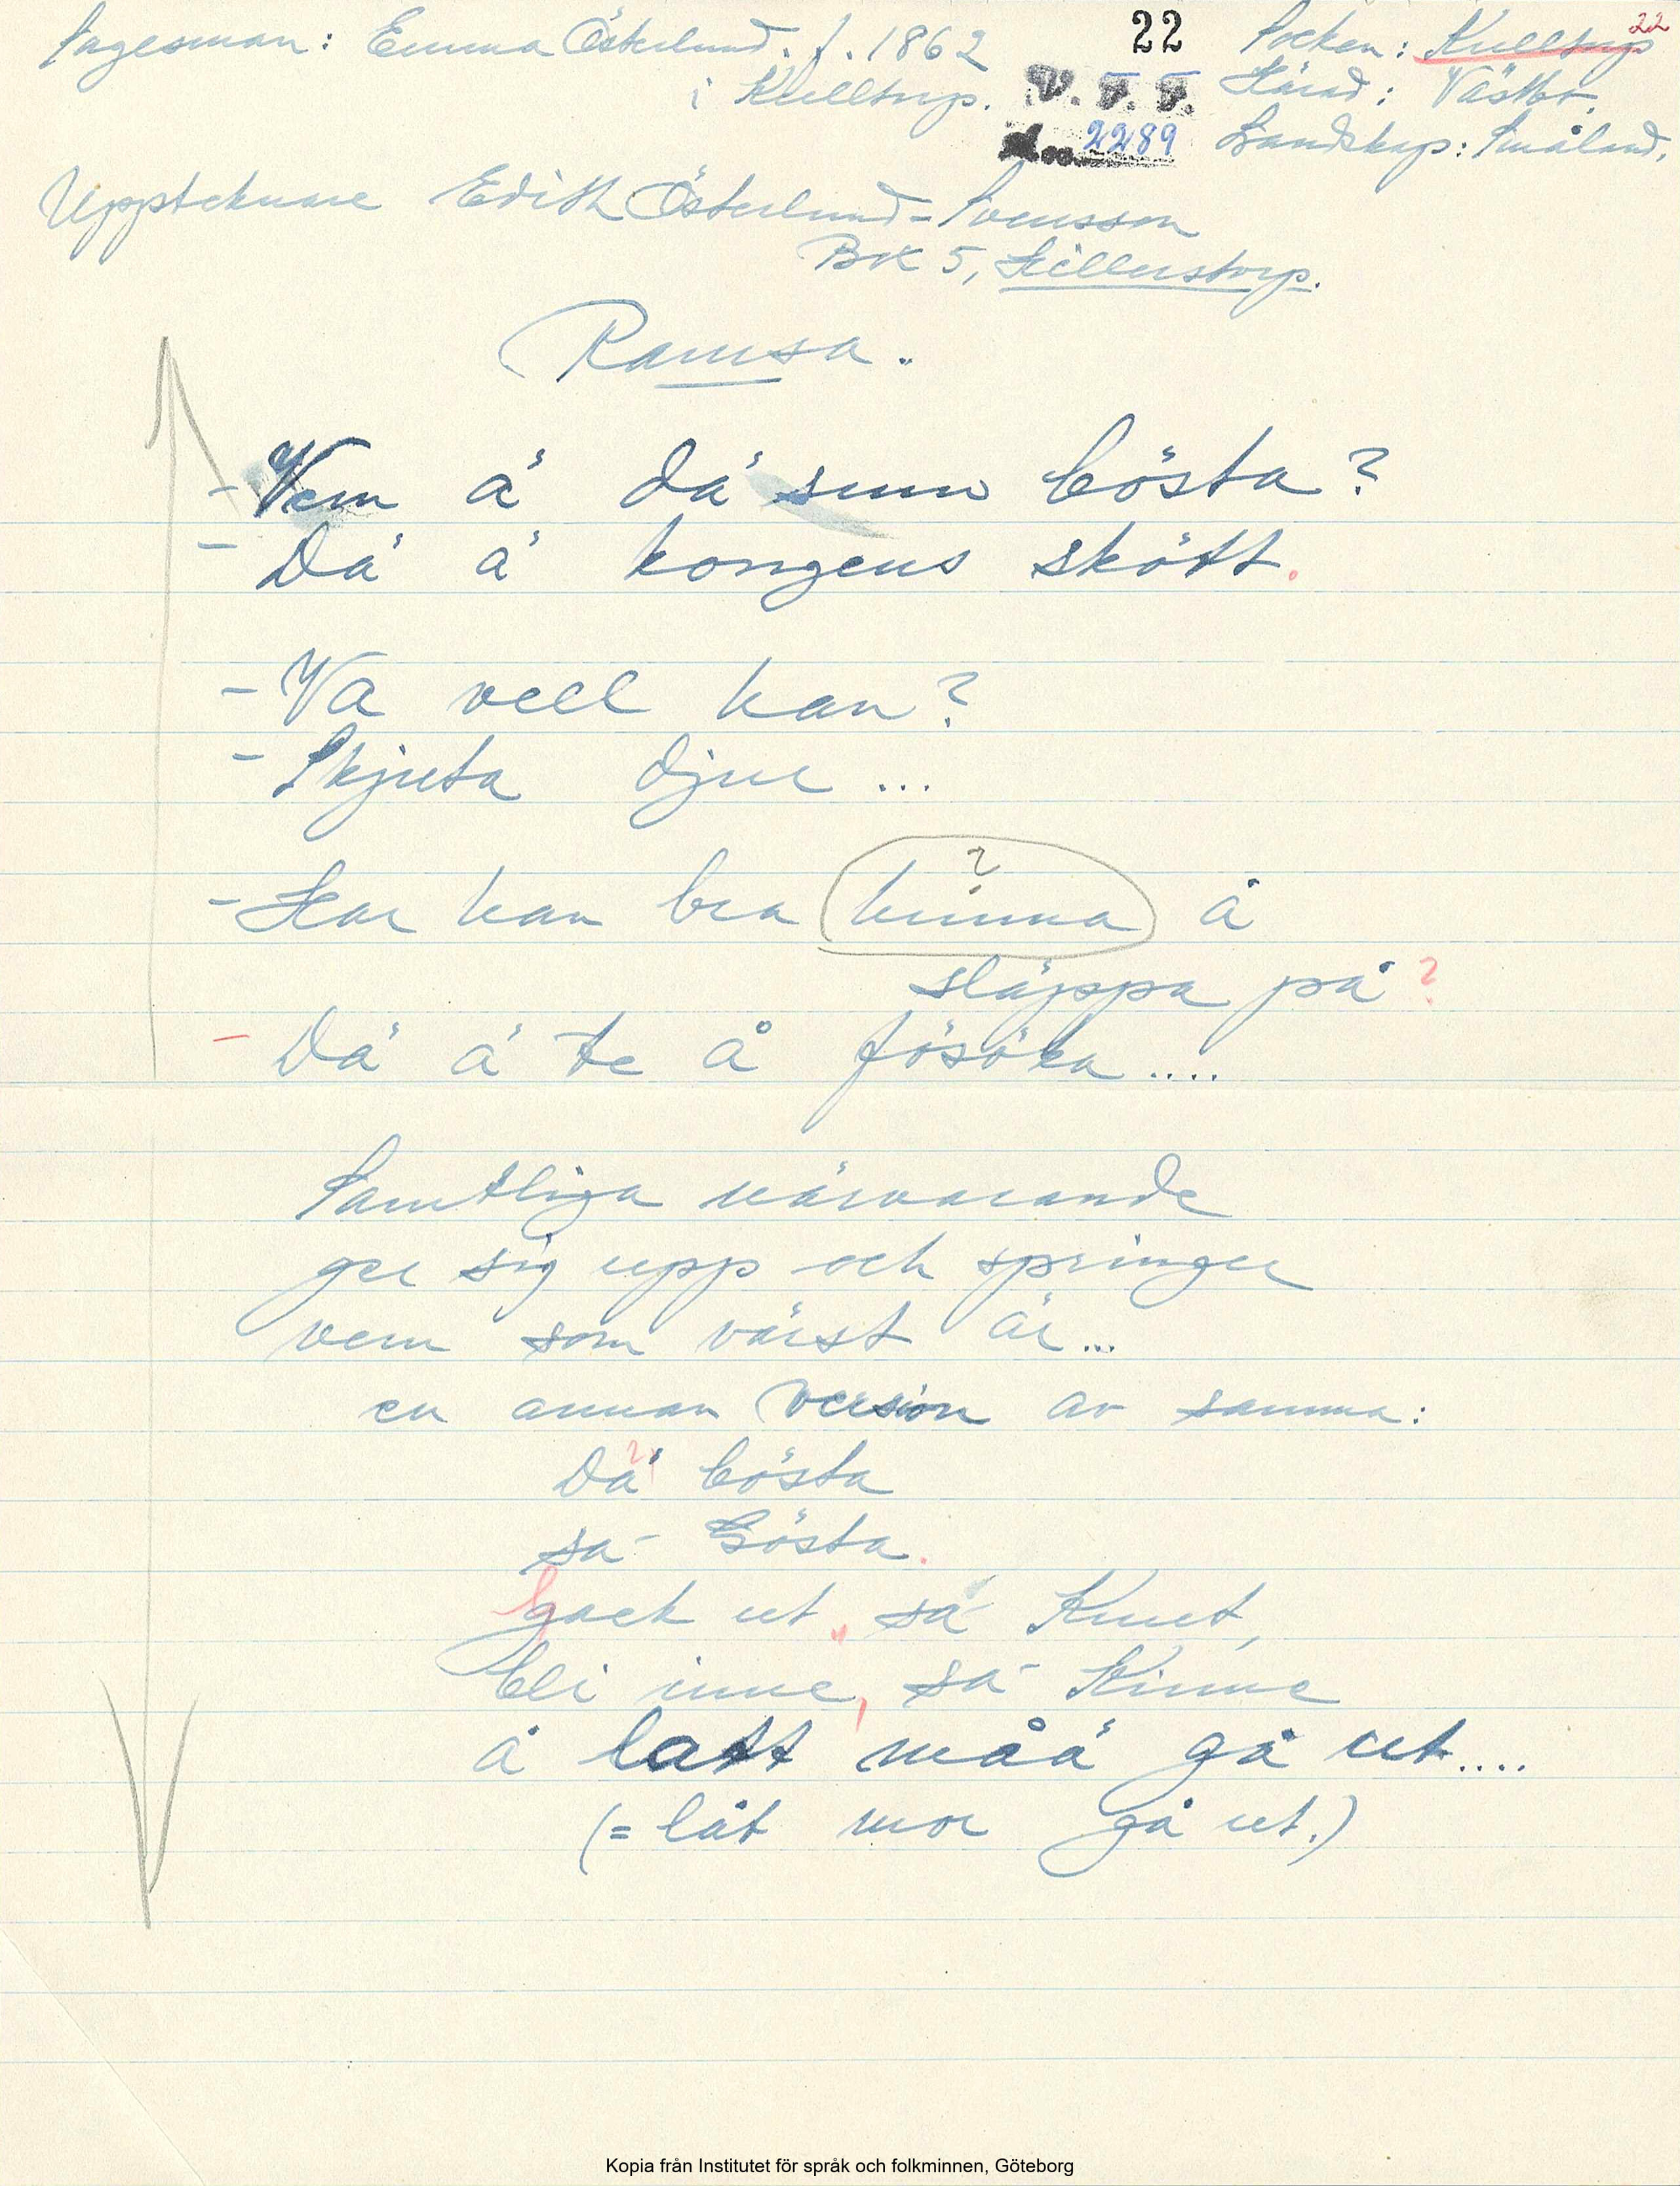 Sagesman: Emma Österlund. f. 1862
i Kulltorp.
22
V. F. F.
2289
22
Socken: Kulltorp
Härad: Västbo.
Landskap: Småland.
Upptecknare Edith Österlund-Svensson
Box 5, Hillerstorp.
Ramsa.
- Vem ä' dä' sum bösta?
- Dä' ä' kongens skött.
- Va vell han?
- Skjuta djur ...
- Har han bra hunna å
?
släppa på ?
- Dä' ä' te å fösöka ....
Samtliga närvarande
ger sig upp och springer
vem som värst är ...
en annan version av samma:
?
Dä' bösta
sa- Gösta.
gack ut, sa Knut,
bli inne, sa- Kinne
å latt måä' gå ut ....
(= låt mor gå ut.)
Kopia från Institutet för språk och folkminnen, Göteborg